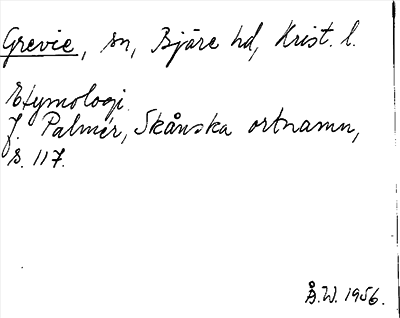 Grevie, sn, Bjäre hd, Krist. l.
Etymologi.
J. Palmér, Skånska ortnamn,
s. 117.
Å.W. 1956.